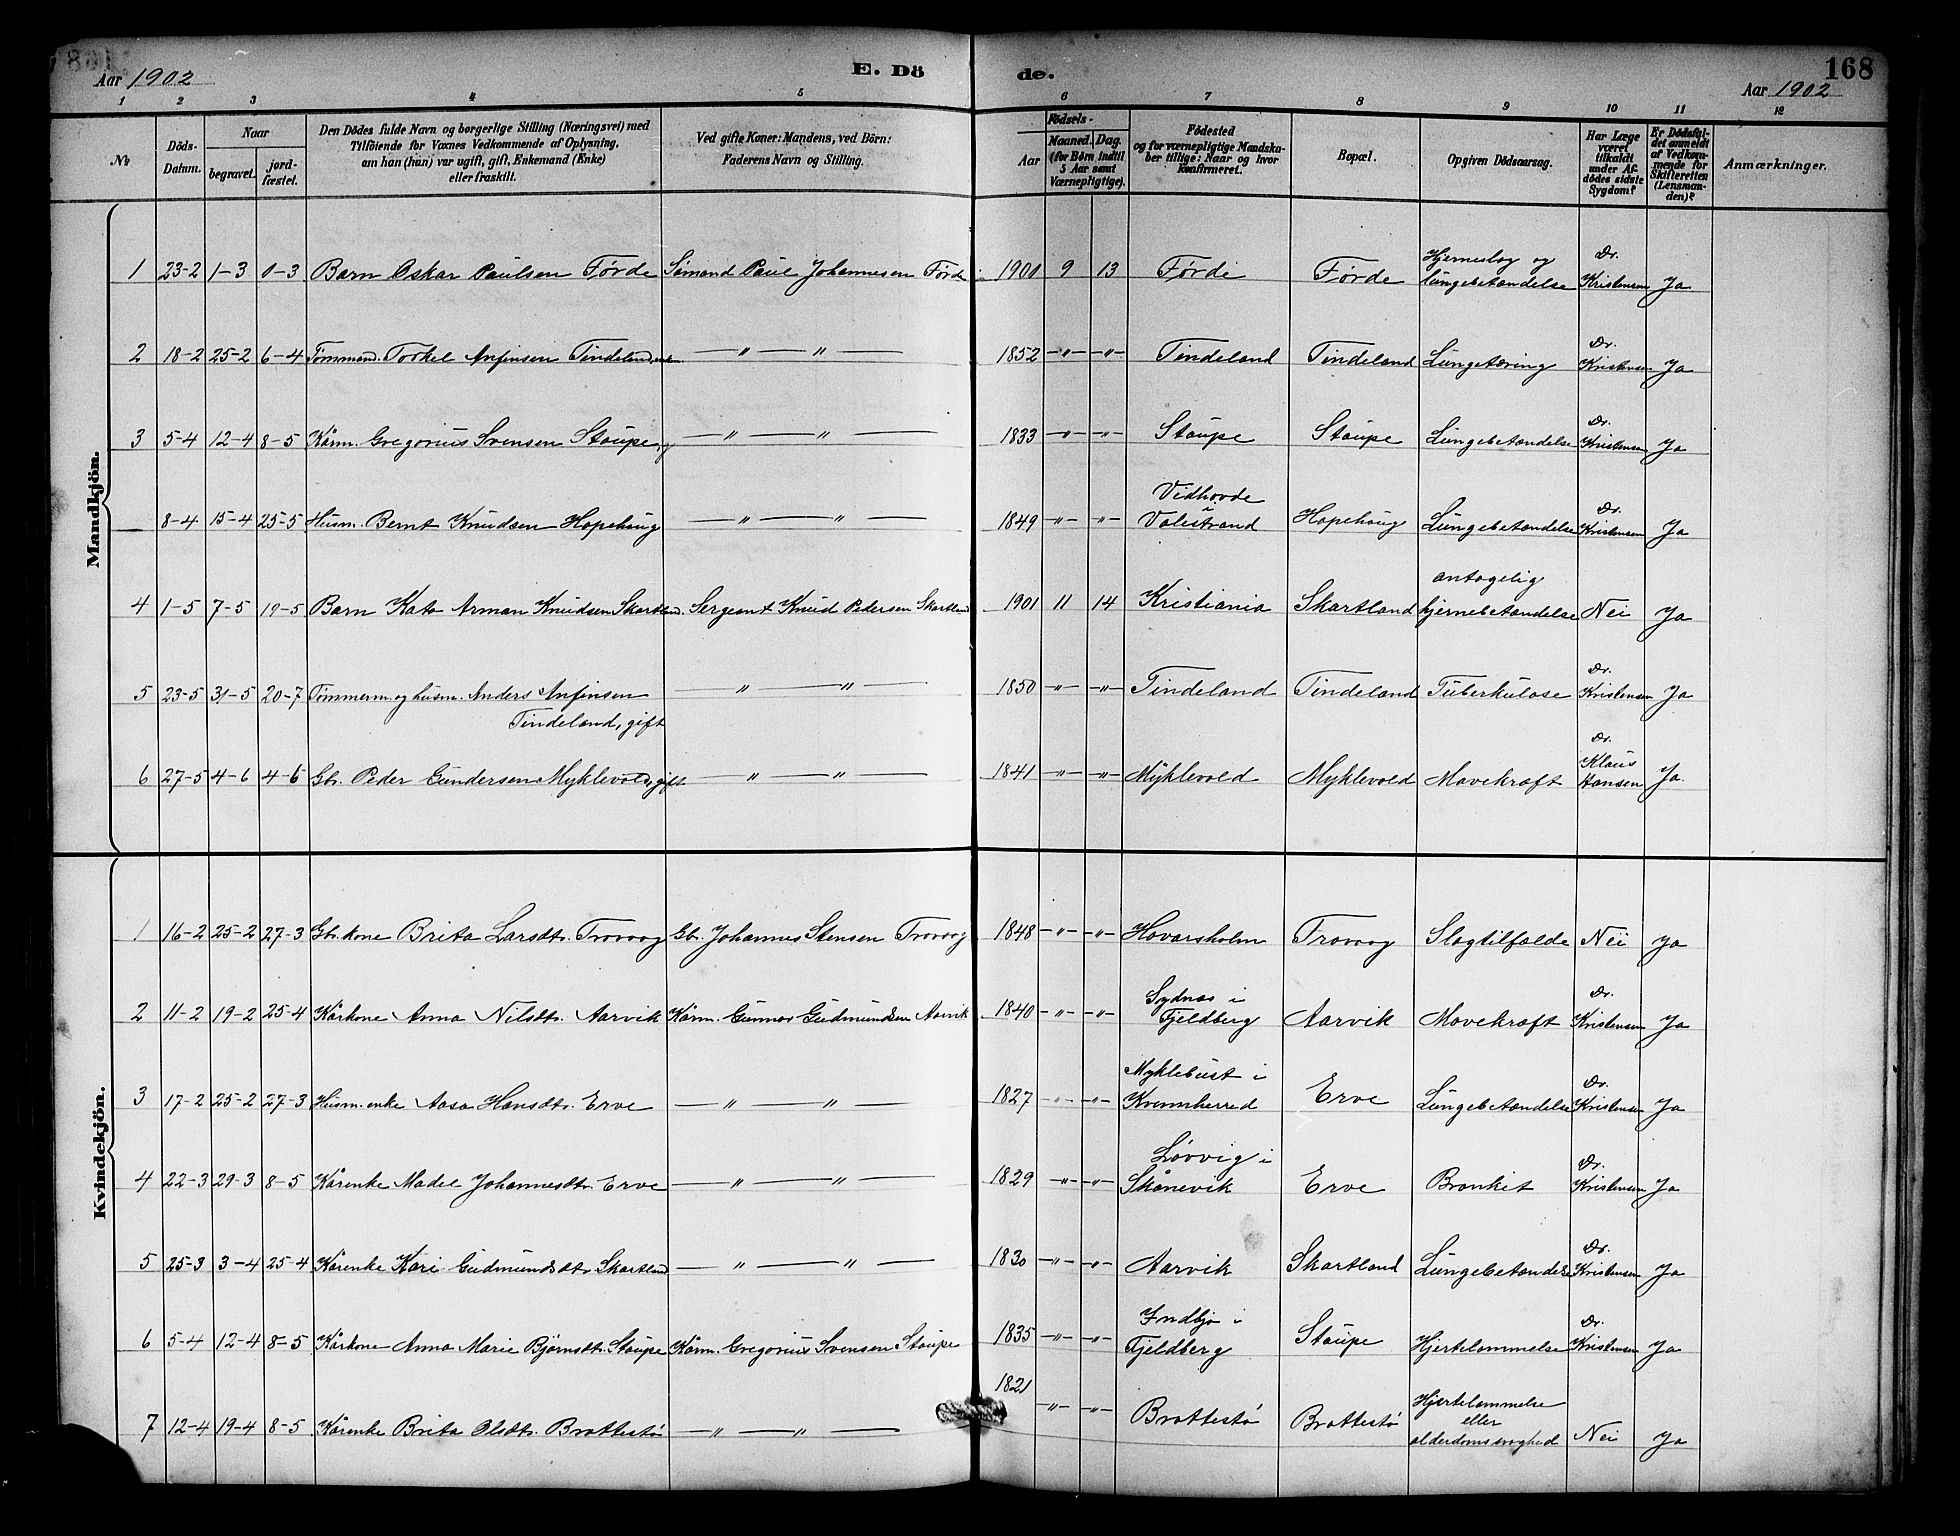 Aar 1902
E. Dö
de.
168
Aar 1902
1 2 3 4 5 6 7 8 9 10 11 12
No
Döds-Datum.
Naar
begravet.
jord-fæstet.
Den Dödes fulde Navn og borgerlige Stilling (Næringsvei) med
Tilföiende for Voxnes Vedkommende af Oplysning,
om han (hun) var ugift, gift, Enkemand (Enke)
eller fraskilt.
Ved gifte Koner: Mandens, ved Börn:
Faderens Navn og Stilling.
Födsels-
Aar
Maaned. Dag.
(for Börn indtil
5 Aar samt
Værnepligtige).
Födested
og for værnepligtige Mandska-
ber tillige: Naar og hvor
konfirmeret.
Bopæl.
Opgiven Dödsaarsag.
Har Læge
været
tilkaldt
under Af-
dödes sidste
Sygdom?
Er Dödsfal-
det anmeldt
af Vedkom-
mende for
Skifteretten
(Lensman-
den)?
Anmærkninger.
Mandkjön.
1 23-2 1-3 1-3 Barn Oskar Paulsen Førde Sömand Paul Johannesen Førde 1901 9 13 Førde Førde Hjerneslag og lungebetændelse Dr. Kristensen Ja
2 18-2 25-2 6-4 Tømmerm. Torkel Anfinsen Tindeland, —"—"— 1852 -"- -"- Tindeland Tindeland Lungetæring Dr. Kristensen Ja
3 5-4 12-4 8-5 Kårm. Gregorius Svensen Staupe, g —"—"— 1833 -"- -"- Staupe Staupe Lungebetændelse Dr. Kristensen Ja
8-4 15-4 25-5 Husm. Bernt Knudsen Hopehaug —"—"— 1849 -"- -"- Vidhovde i Valestrand Hopehaug Lungebetændelse Dr. Kristensen Ja
4 1-5 7-5 19-5 Barn Kato Arman Knudsen Skartland. Sergeant Knud Pedersen Skartland 1901 11 14 Kristiania Skartland antagelig hjernebetændelse Nei Ja
5 23-5 31-5 20-7 Tømmerm. og husm. Anders Anfinsen —"—"— 1850 -"- -"- Tindeland Tindeland Tuberkulose Dr. Kristensen Ja
Tindeland, gift
6 27-5 4-6 4-6 Gbr. Peder Gundersen Myklevold, gift —"—"— 1841 -"- -"- Myklevold Myklevold Mavekræft Dr. Klaus Hansen Ja.
Kvindekjön.
1 16-2 25-2 27-3 Gbr.kone Brita Larsdtr. Trovaag Gbr. Johannes Stensen Trovaag 1848 -"- -"- Hovarsholm Trovaag Slagtilfælde Nei Ja
2 11-2 19-2 25-4 Kårkone Anna Nilsdtr. Aarvik Kårm. Gunnar Gudmundsen Aarvik 1840 -"- -"- Sydnæs i Fjeldberg Aarvik Mavekræft Dr. Kristensen Ja
3 17-2 25-2 27-3 Husm. enke Aasa Hansdtr. Erve —"—"— 1827 -"- -"- Myklebust i Kvinnherred Erve Lungebetændelse Dr. Kristensen Ja
4 22-3 29-3 8-5 Kårenke Madel Johannesdtr. Erve —"—"— 1829 -"- -"- Løvvig i Skånevik Erve Bronkit Dr. Kristensen Ja
5 25-3 3-4 25-4 Kårenke Kari Gudmundsdtr Skartland —"—"— 1830 -"- -"- Aarvik Skartland Lungebetændelse Dr. Kristensen Ja
6 5-4 12-4 8-5 Kårkone Anna Marie Bjørnsdtr. Staupe Kårm. Gregorius Svensen Staupe 1835 -"- -"- Indbjo i Fjeldberg Staupe Hjertelammelse Dr. Kristensen Ja
7 12-4 19-4 8-5 Kårenke Brita Olsdtr. Brattestø —"—"— 1821 -"- -"- Brattestø Brattestø Hjertelammelse eller alderdomssvaghed Nei Ja